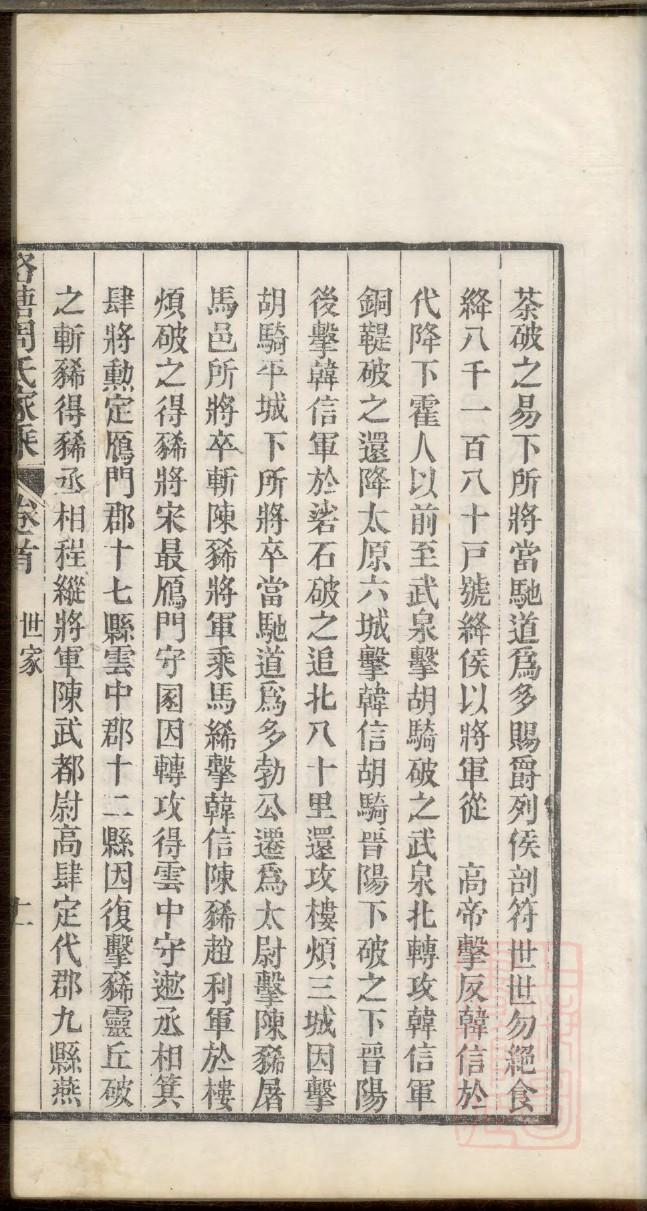 荼破之易下所將當馳道爲多賜爵列侯剖符世世勿絕食
絳八千一百八十戸號絳侯以將軍從　高帝擊反韓信於
代降下霍人以前至武泉擊胡騎破之武泉北轉攻韓信軍
銅鞮破之還降太原六城擊韓信胡騎晉陽下破之下晉陽
後擊韓信軍於硰石破之追北八十里還攻樓煩三城因擊
胡騎平城下所將卒當馳道爲多勃公遷爲太尉擊陳豨屠
馬邑所將卒斬陳豨將軍乘馬絺擊韓信陳豨趙利軍於樓
煩破之得豨將宋最鴈門守圂因轉攻得雲中守遬丞相箕
肆將勳定鴈門郡十七縣雲中郡十二縣因復擊豨靈丘破
之斬豨得豨丞相程縱將軍陳武都尉高肆定代郡九縣燕
周氏家乘　卷首　世家